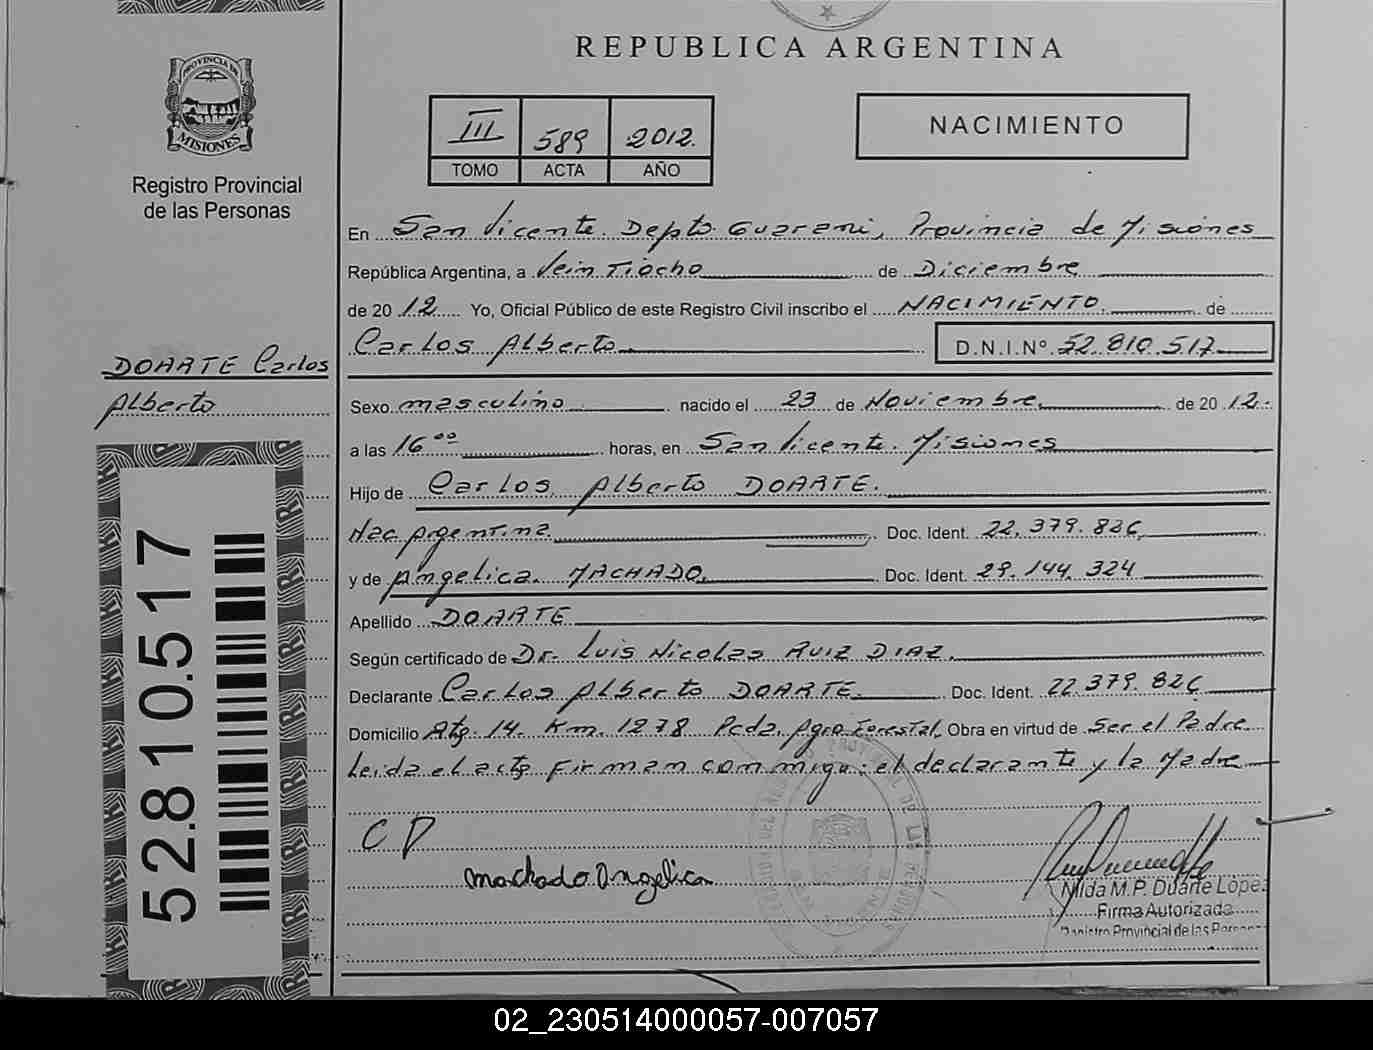 REPUBLICA ARGENTINA
PROVINCIA DE
MISIONES
Registro Provincial
de las Personas
III 589 2012.
TOMO ACTA AÑO
NACIMIENTO
En San Vicente. Depto Guarani, Provincia de Misiones
República Argentina, a Veintiocho de Diciembre
de 2012 Yo, Oficial Público de este Registro Civil inscribo el NACIMIENTO. de
Carlos Alberto D.N.I.Nº 52.810.517
DOARTE Carlos
Alberto
Sexo masculino nacido el 23 de Noviembre de 2012.
a las 16 ºº horas, en San Vicente. Misiones
Hijo de Carlos Alberto DOARTE.
Nac Argentina. Doc. Ident. 22.379.826
y de Angelica. MACHADO. Doc. Ident. 29.144.324
Apellido DOARTE
Según certificado de Dr. Luis Nicolas RUIZ DIAZ.
Declarante Carlos Alberto DOARTE. Doc. Ident. 22.379.826
Domicilio Km. 1278 Obra en virtud de Ser el Padre
Leida el acta Firman conmigo: el declarante y la Madre
C D
Machado Angelica
Nilda M.P. Duarte López
Firma Autorizada
Registro Provincial de las Personas
52.810.517
02_230514000057-007057